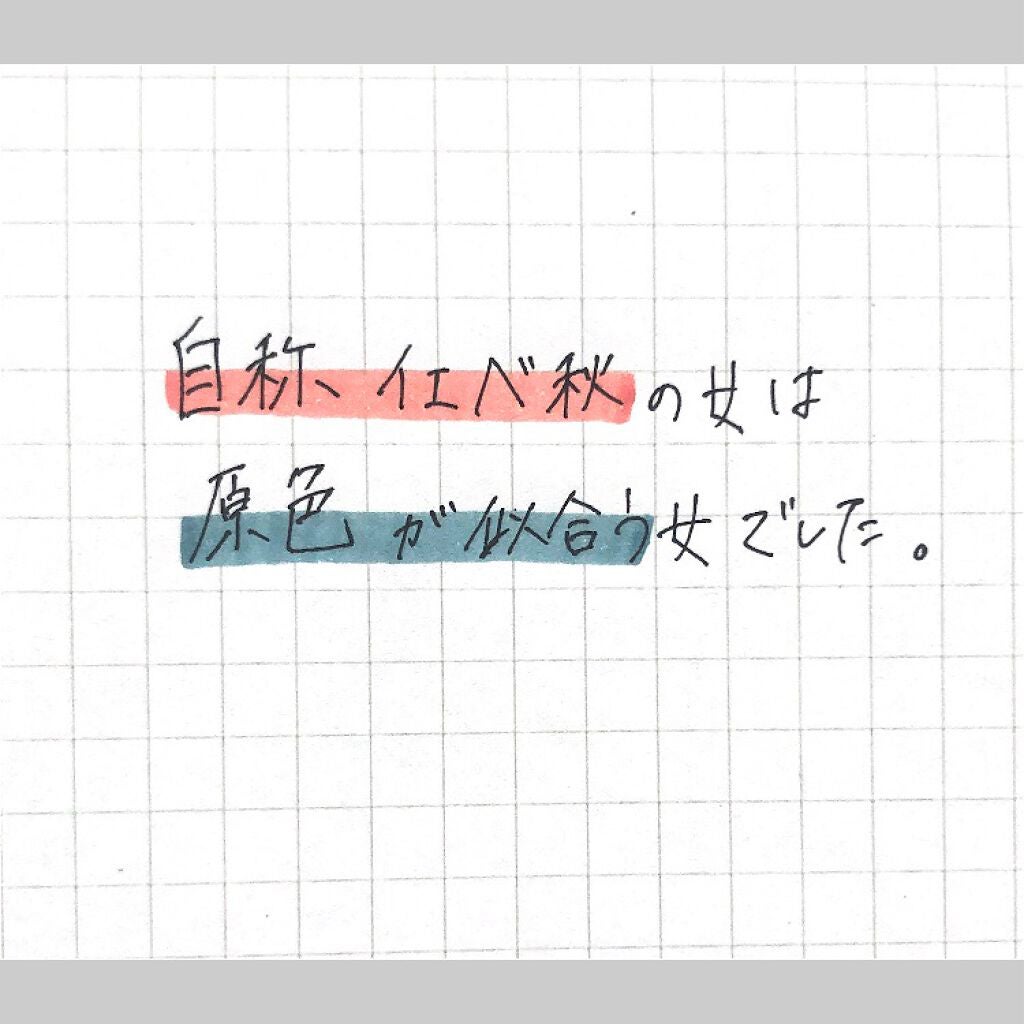 自称、イエベ秋の女は
原色が似合う女でした。